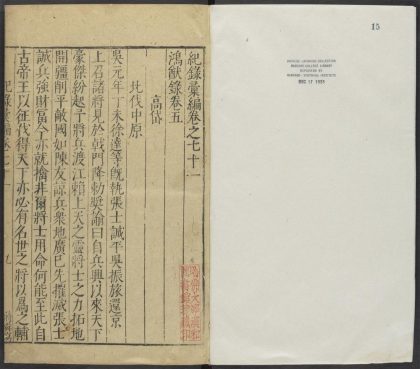 15
CHINESE-JAPANESE COLLECTION
HARVARD COLLEGE LIBRARY
DEPOSITED BY
HARVARD-YENCHING INSTITUTE
紀錄彙編卷之七十一
鴻猷錄卷五
高岱
北伐中原
吳元年丁未徐達等旣執張士誠平吳振旅還京
上召諸將見於戟門降勑奬諭曰自兵興以來天下
豪傑紛起予將兵渡江賴上天之靈將士之力拓地
開疆削平敵國如陳友諒兵衆地廣已先摧滅張士
誠兵強財富今亦就擒非爾將士用命何能至此自
古帝王以征伐得天下亦必有名世之將以爲之輔